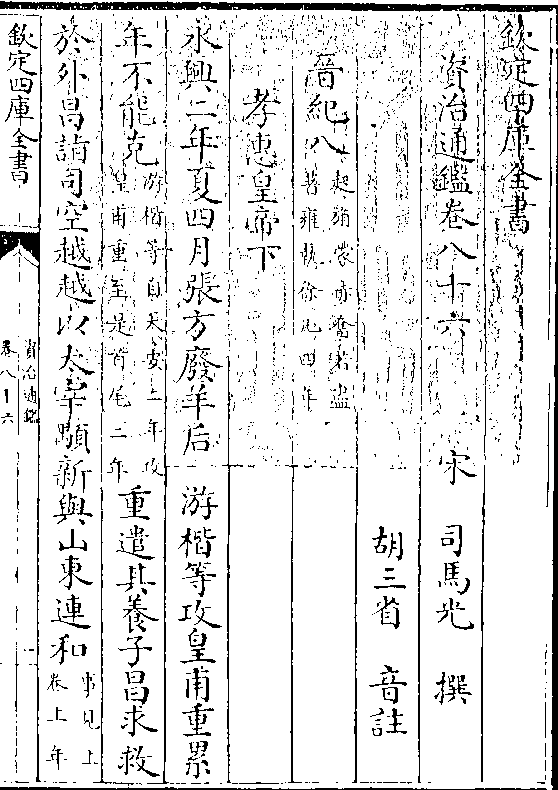 欽定四庫全書
資治通鑑卷八十六
宋 司馬光 撰
胡三省 音註
晉紀八起旃蒙赤奮若盡著雍執徐凡四年
孝惠皇帝下
永興二年夏四月張方廢羊后 游楷等攻皇甫重累
年不能克游楷等自太安二年攻皇甫重至是首尾三年重遣其養子昌求救
於外昌詣司空越越以太宰顒新與山東連和事見上卷上年
欽定四庫全書
資治通鑑
卷八十六
一